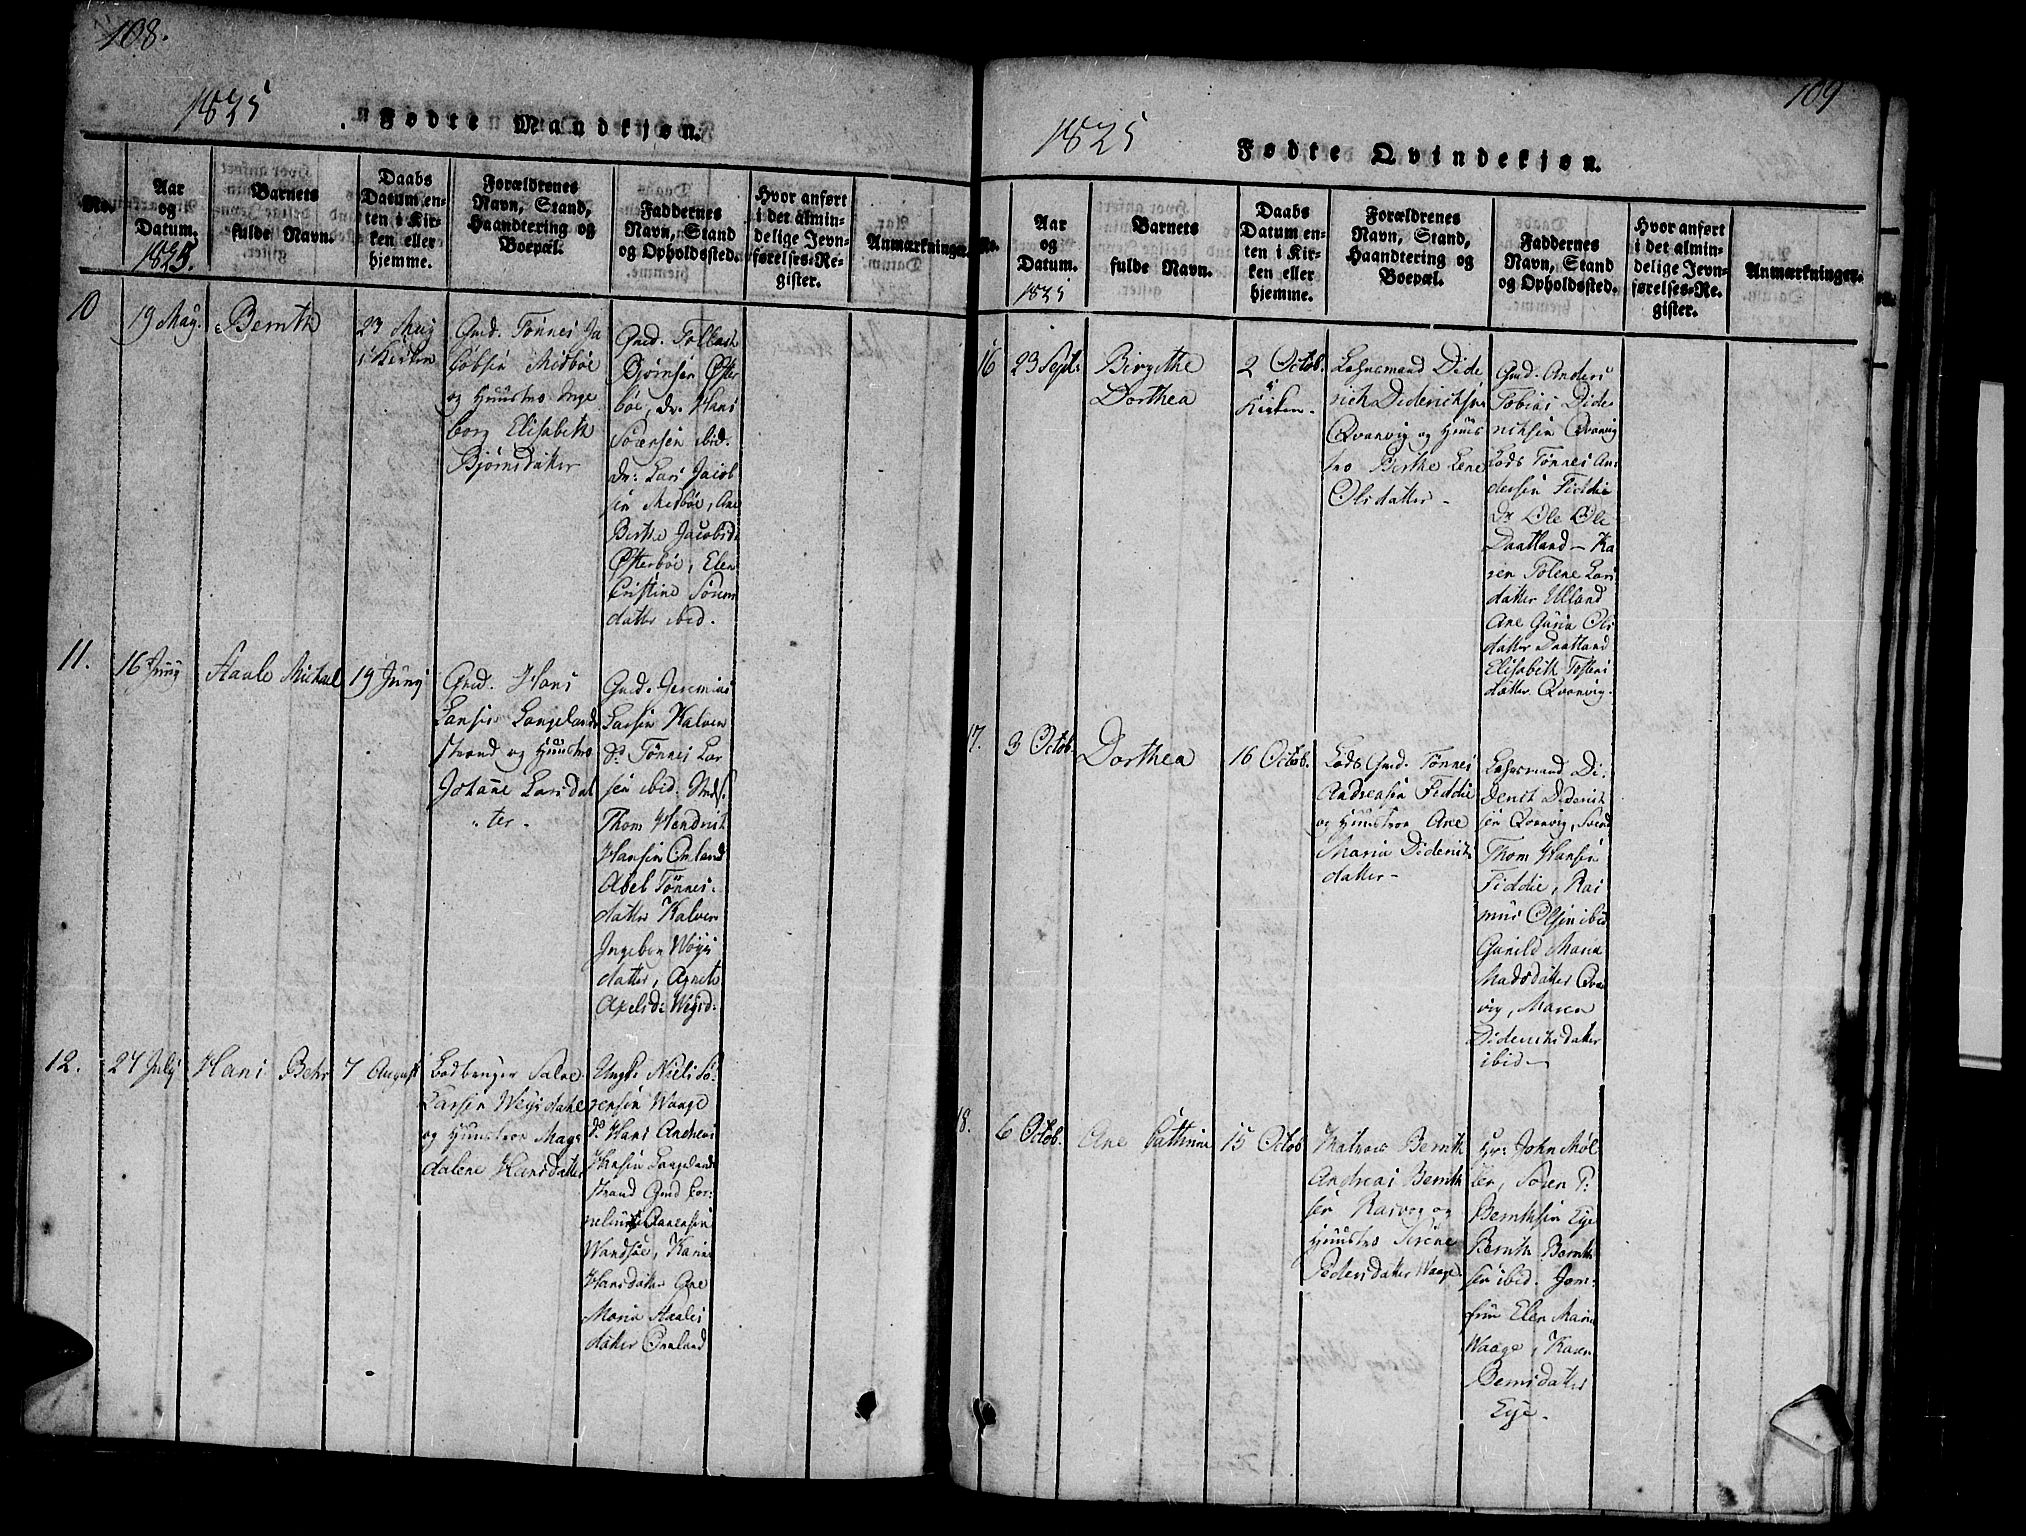 108.
1825
Fødte Mandkjøn.
No.
Aar
og
Datum.
1825.
Barnets
fulde Navn.
Daabs
Datum en-
ten i Kir-
ken eller
hjemme.
Forældrenes
Navn, Stand,
Haandtering og
Boepæl.
Faddernes
Navn, Stand
og Opholdssted.
Hvor anført
i det almin-
delige Jevn-
førelses-Re-
gister.
Anmærkninger.
10
19 May.
Bernth
23 May
i Kirken
Gmd. Tönnes Ja
cobsen Midböe
og Huustro Inge
borg Elisabeth
Bjørnsdatter
Gmd. Tollach
Bjørnsen Øster
böe, do. Hans
Sörensen ibid.
do: Lars Jacob
sen Midböe, Ane
Berthe Jacobsd:
Österböe, Elen
Cristine Sören
datter ibid.
11.
16 Juny
Aaale Michael
19 Junj
Gmd. Hans
Larsen Langeland
strand og Huustro
Johane Larsdat
ter.
Gmd. Jeremias
Larsen Kalven
do Tönnes Lar
sen ibid.
Thom Hendrich
Hansen Omland
Abel Tönnes
datter Kalven
Ingebor
datter, Agnete
Axelsd:
12.
24 July
Hans Behr
7 August
Lodbruger Salve
Larsen
og Huustroe Mag
dalene Hansdatter
Ungk: Niels Sö-
rensen Waage
do. Hans Andreas
Hansen Langeland
strand Gmd Cor-
nelius
Wandsöe, Karen
Hansdatter Ane
Maria Aaales
datter Omland
109
1825
Fødte Qvindekjøn.
No.
Aar
og
Datum.
1825
Barnets
fulde Navn.
Daabs
Datum en-
ten i Kir-
ken eller
hjemme.
Forældrenes
Navn, Stand,
Haandtering og
Boepæl.
Faddernes
Navn, Stand
og Opholdssted.
Hvor anført
i det almin-
delige Jevn-
førelses-Re-
gister.
Anmærkninger.
16
23 Sept:
Birgithe
Dorthea
2 Octob.
i
Kirken.
Lehnsmand Dide
rich Diderichsen
Qvanvig og Huus
tro Berthe Lene
Olsdatter
Gmd. Anders
Tobias Dide
richsen Qvanvig
Lods Tönnes An
dersen Fiddie
Do Ole Ole
Daatland - Ka
ren Tolene Lars
datter Ulland
Ane Guria Ols
datter Daatland
Elisabeth Tosten
datter Qvanvig.
17.
3 Octob.
Dorthea
16 Octob.
Lods Gmd. Tönnes
Andreasen Fiddie
og Huustroe Ane
Maria Diderichs
datter
Lehnsmand Di
derich Diderich
sen Qvanvig, Svend
Thom Hansen
Fiddie, Ras
mus Olsen ibid
Gunild Maria
Madsdatter Qvan
vig, Maren
Diderichsdatter
ibid
18.
6 Octob.
Ane Cathrine
15 Octob
Matros Bernth
Andreas Bernth
sen Rasvog og
Huustro Serene
Pedersdatter Waage.
Hr: John Möl
ler, Sören P.
Bernthsen Eye
Bernth Bernth
sen ibid. Jom-
frue Elen Maria
Waage, Karen
Berntsdatter
Eye.